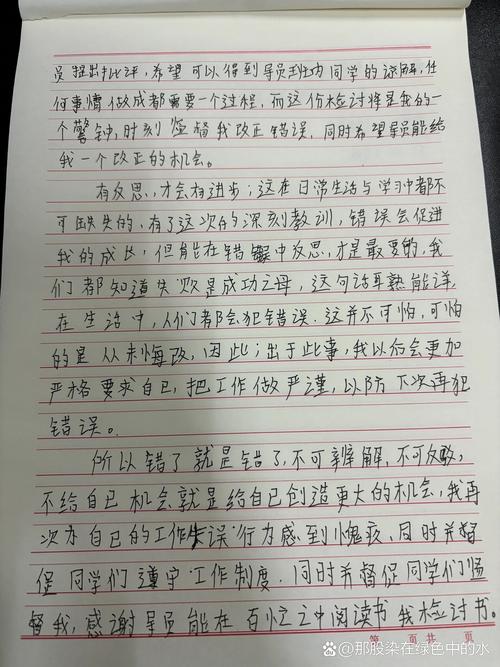 员提出批评，希望可以得到导员班内同学的谅解，任
何事情做成都需要一个过程，而这份检讨将是我的一
个警钟，时刻监督我改正错误，同时希望导员能给
我一个改正的机会。
有反思，才会有进步；这在日常生活与学习中都不
可缺失的，有了这次的深刻教训，错误会促进
我的成长，但能在错误中反思，才是最要的，我
们都知道失败是成功之母，这句话耳熟能详，
在生活中，人们都会犯错误，这并不可怕，可怕
的是从未悔改，因此；出于此事，我以后会更加
严格要求自己，把工作做严谨，以防下次再犯
错误。
所以错了就是错了，不可辩解，不可反驳，
不给自己机会就是给自己创造更大的机会，我再
次为自己的工作失误行为感到愧疚，同时并督
促同学们遵守工作制度，同时并督促同学们监
督我，感谢导员能在百忙之中阅读书我检讨书。
第 页 共 页
知乎 @那股染在绿色中的水